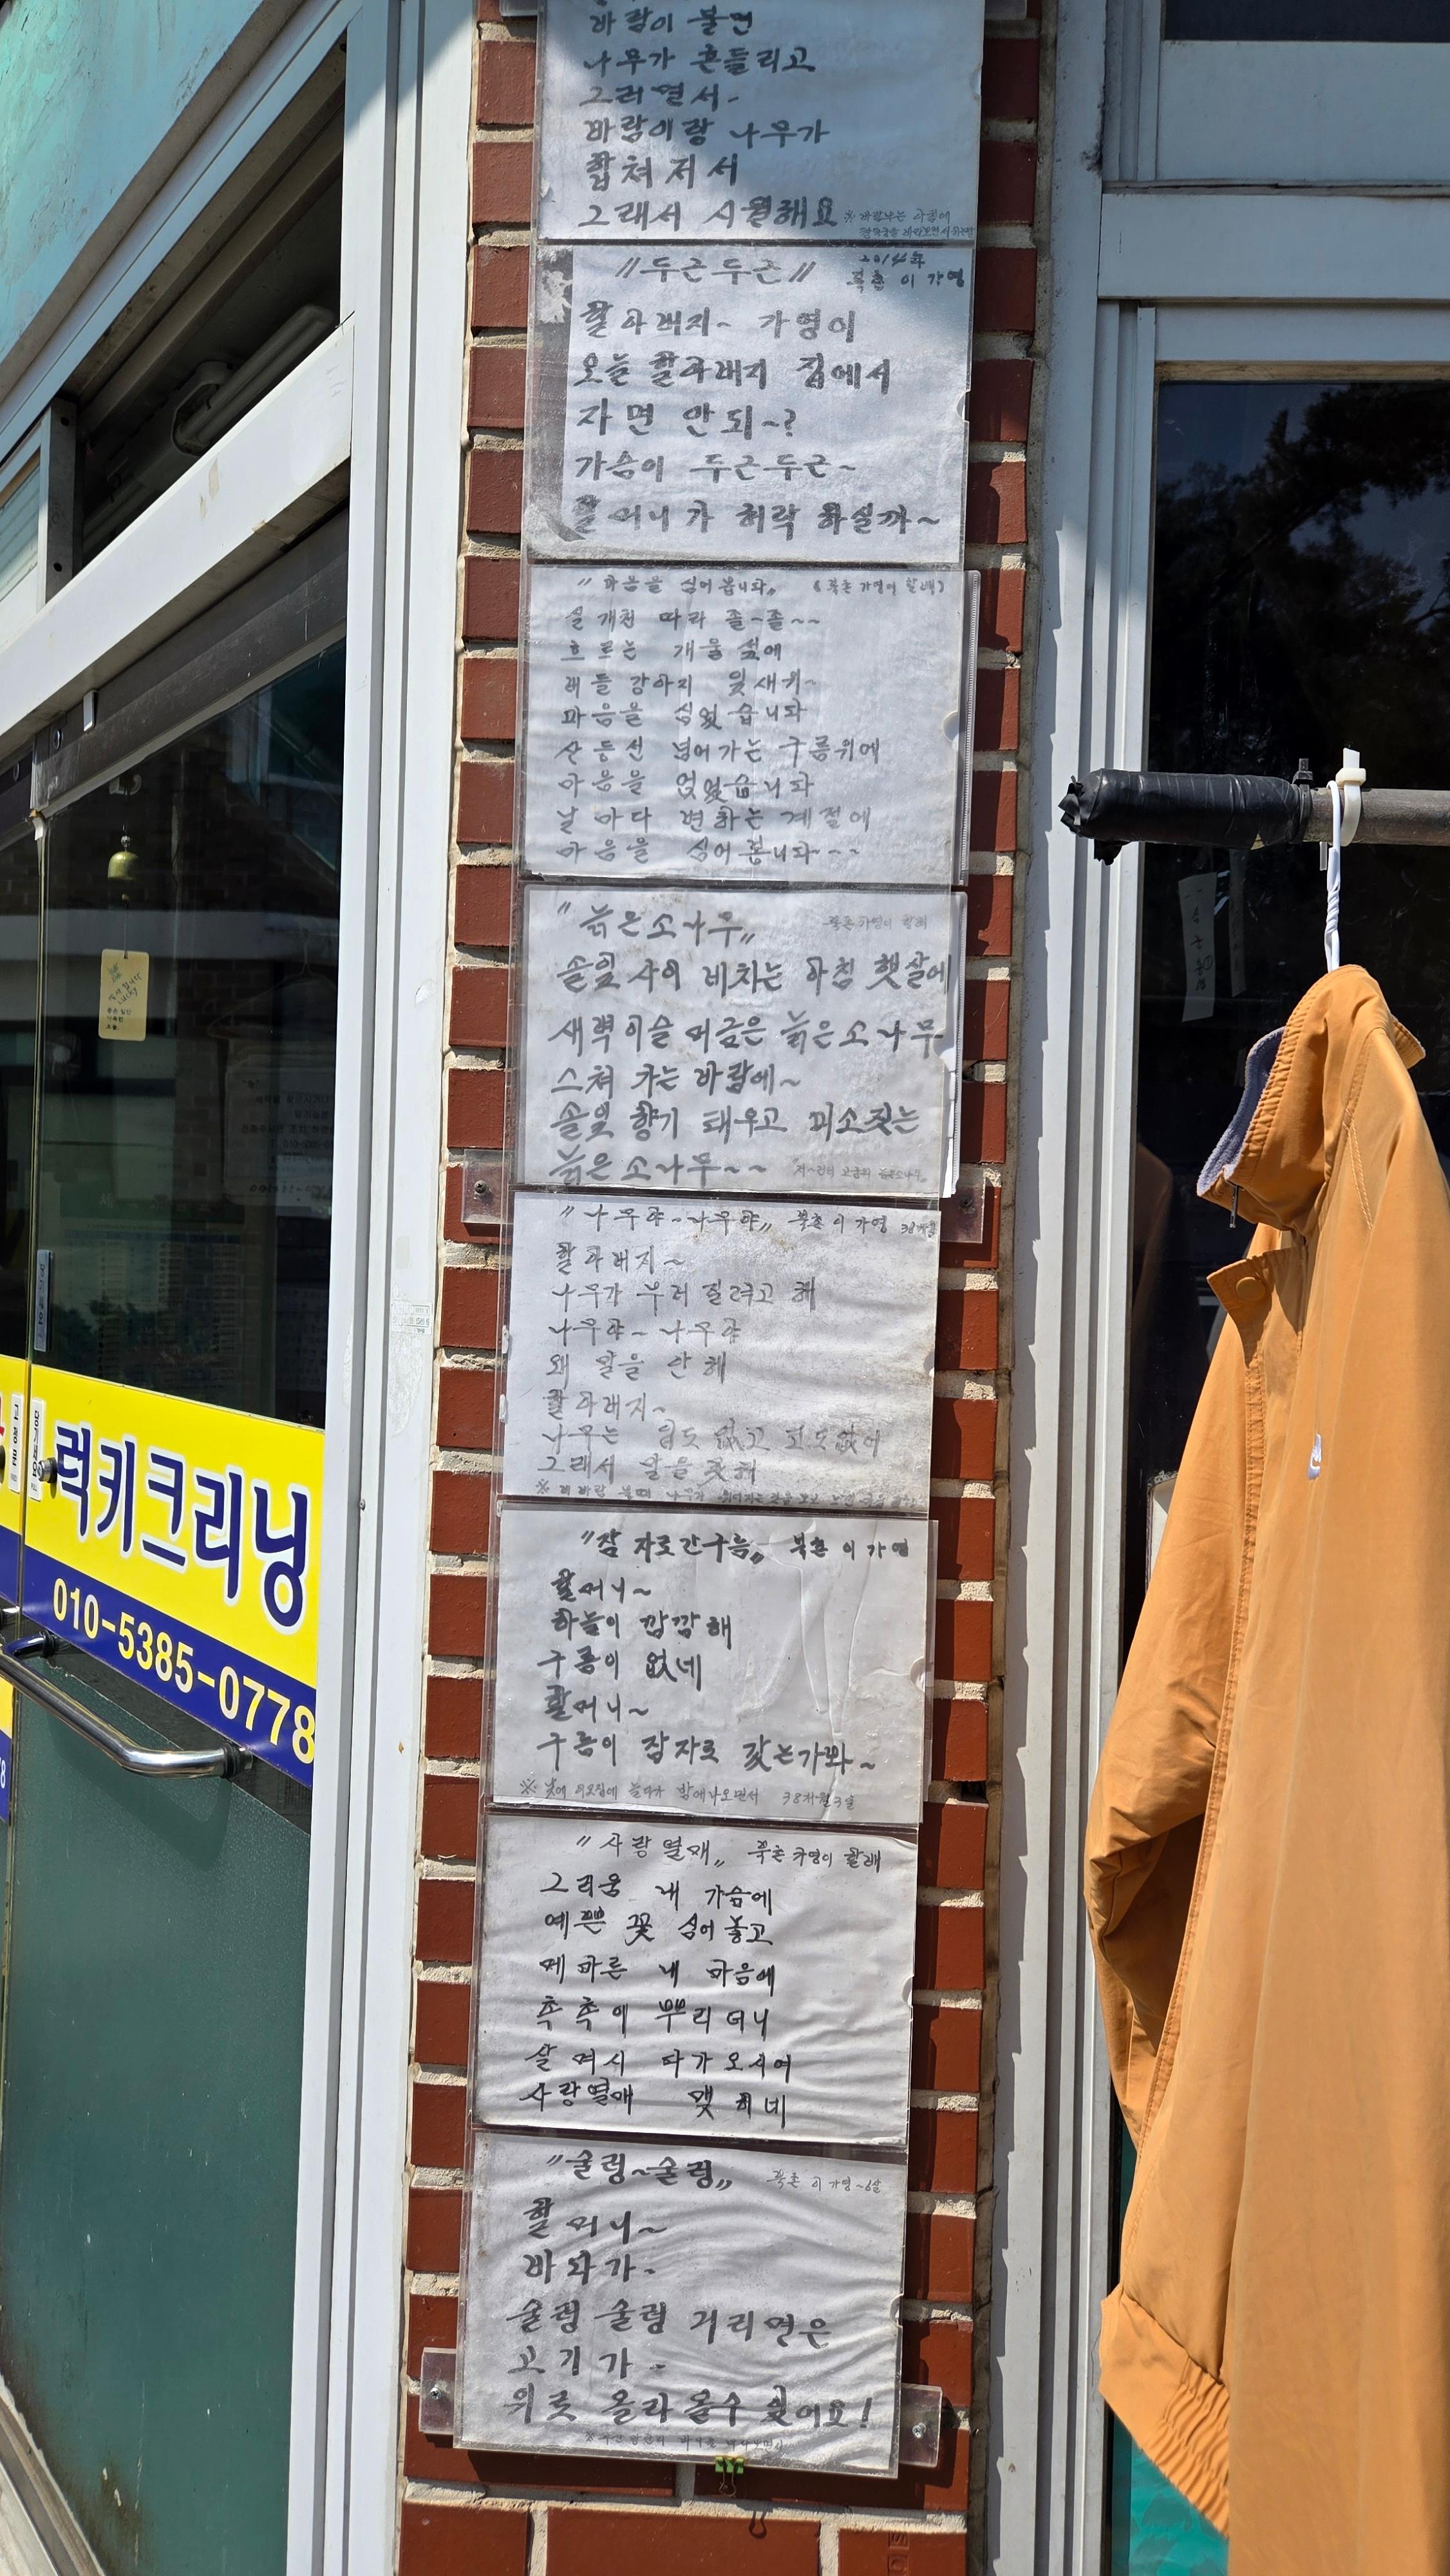 바람이 불면
나무가 흔들리고
그러면서~
바람이랑 나무가
합쳐저서
그래서 시원해요
"두근두근"
2014年
북촌 이가영
할아배지~ 가영이
오늘 할아배지 집에서
자면 안되~?
가슴이 두근두근~
할머니가 허락 하실까~
"마음을 심어봅니다" (북촌 가영이 할배)
실개천 따라 졸~졸~~
흐르는 개울 섶에
버들강아지 잎새귀~
마음을 심었습니다
산등선 넘어가는 구름위에
마음을 얹었습니다
날마다 변화는 계절에
마음을 심어봅니다~~~
"늙은소나무"
북촌 가영이 할배
솔잎 사이 비치는 아침 햇살에
새벽이슬 머금은 늙은소나무
스쳐 가는 바람에~
솔잎 향기 태우고 미소짓는
늙은소나무~~
"나무야~나무야" 북촌 이가영
할아배지~
나무가 부러 질려고 해
나무야~ 나무야
왜 말을 안해
할아배지~
나무는 입도 없고 코도없어
그래서 말을 못해
"잠자로간구름" 북촌 이가영
할머니~
하늘이 깜깜해
구름이 없네
할머니~
구름이 잠자로 갔는가봐~
※ 낮에 외갓집에 놀다가 밤에나오면서 38개월3일
"사랑열매" 북촌 가영이 할배
그리움 내 가슴에
예쁜 꽃 심어놓고
메마른 내 마음에
촉촉이 뿌리더니
살며시 다가오시어
사랑열매 맺히네
"술렁~술렁" 북촌 이가영~6살
할머니~
바다가~
술렁 술렁 거리면은
고기가~
위로 올라올수 있어요!
럭키크리닝
010-5385-0778
Lucky